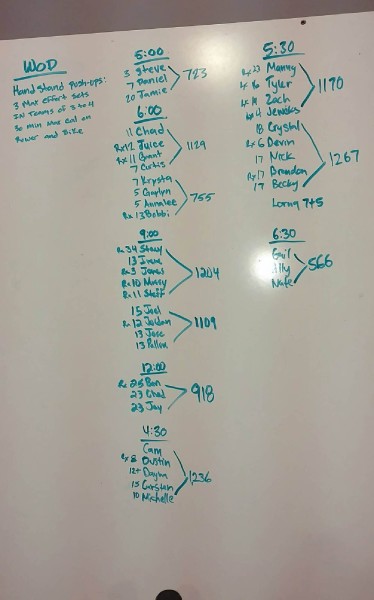 WOD
Handstand Push-ups:
3 Max effort sets
IN Teams of 3 to 4
30 min Max Cal on
Rower and Bike
5:00
3 Steve
7 Daniel
20 Jamie
723
6:00
11 Chad
Rx12 Juice
Rx 11 Grant
7 Curtis
1129
7 Krysta
5
5 Annalee
Rx 13 Bobbi
755
9:00
Rx 34 Stacy
13 Irene
Rx 3 James
Rx 10 Missy
Rx 11 Steff
1204
15 Joel
Rx 12 Jordan
13 Jose
13
1109
12:00
Rx 25 Ben
23 Chad
23 Jay
918
4:30
Cam
Rx 8 Dustin
12+ Dayna
15 Carson
10 Michelle
1236
5:30
Rx 23 Manny
Tyler
Zach
4
1170
18 Crystal
Rx 6 Devin
17 Nick
Rx 17 Brandon
17 Becky
1267
Lorna 745
6:30
Gail
Ally
Nate
566